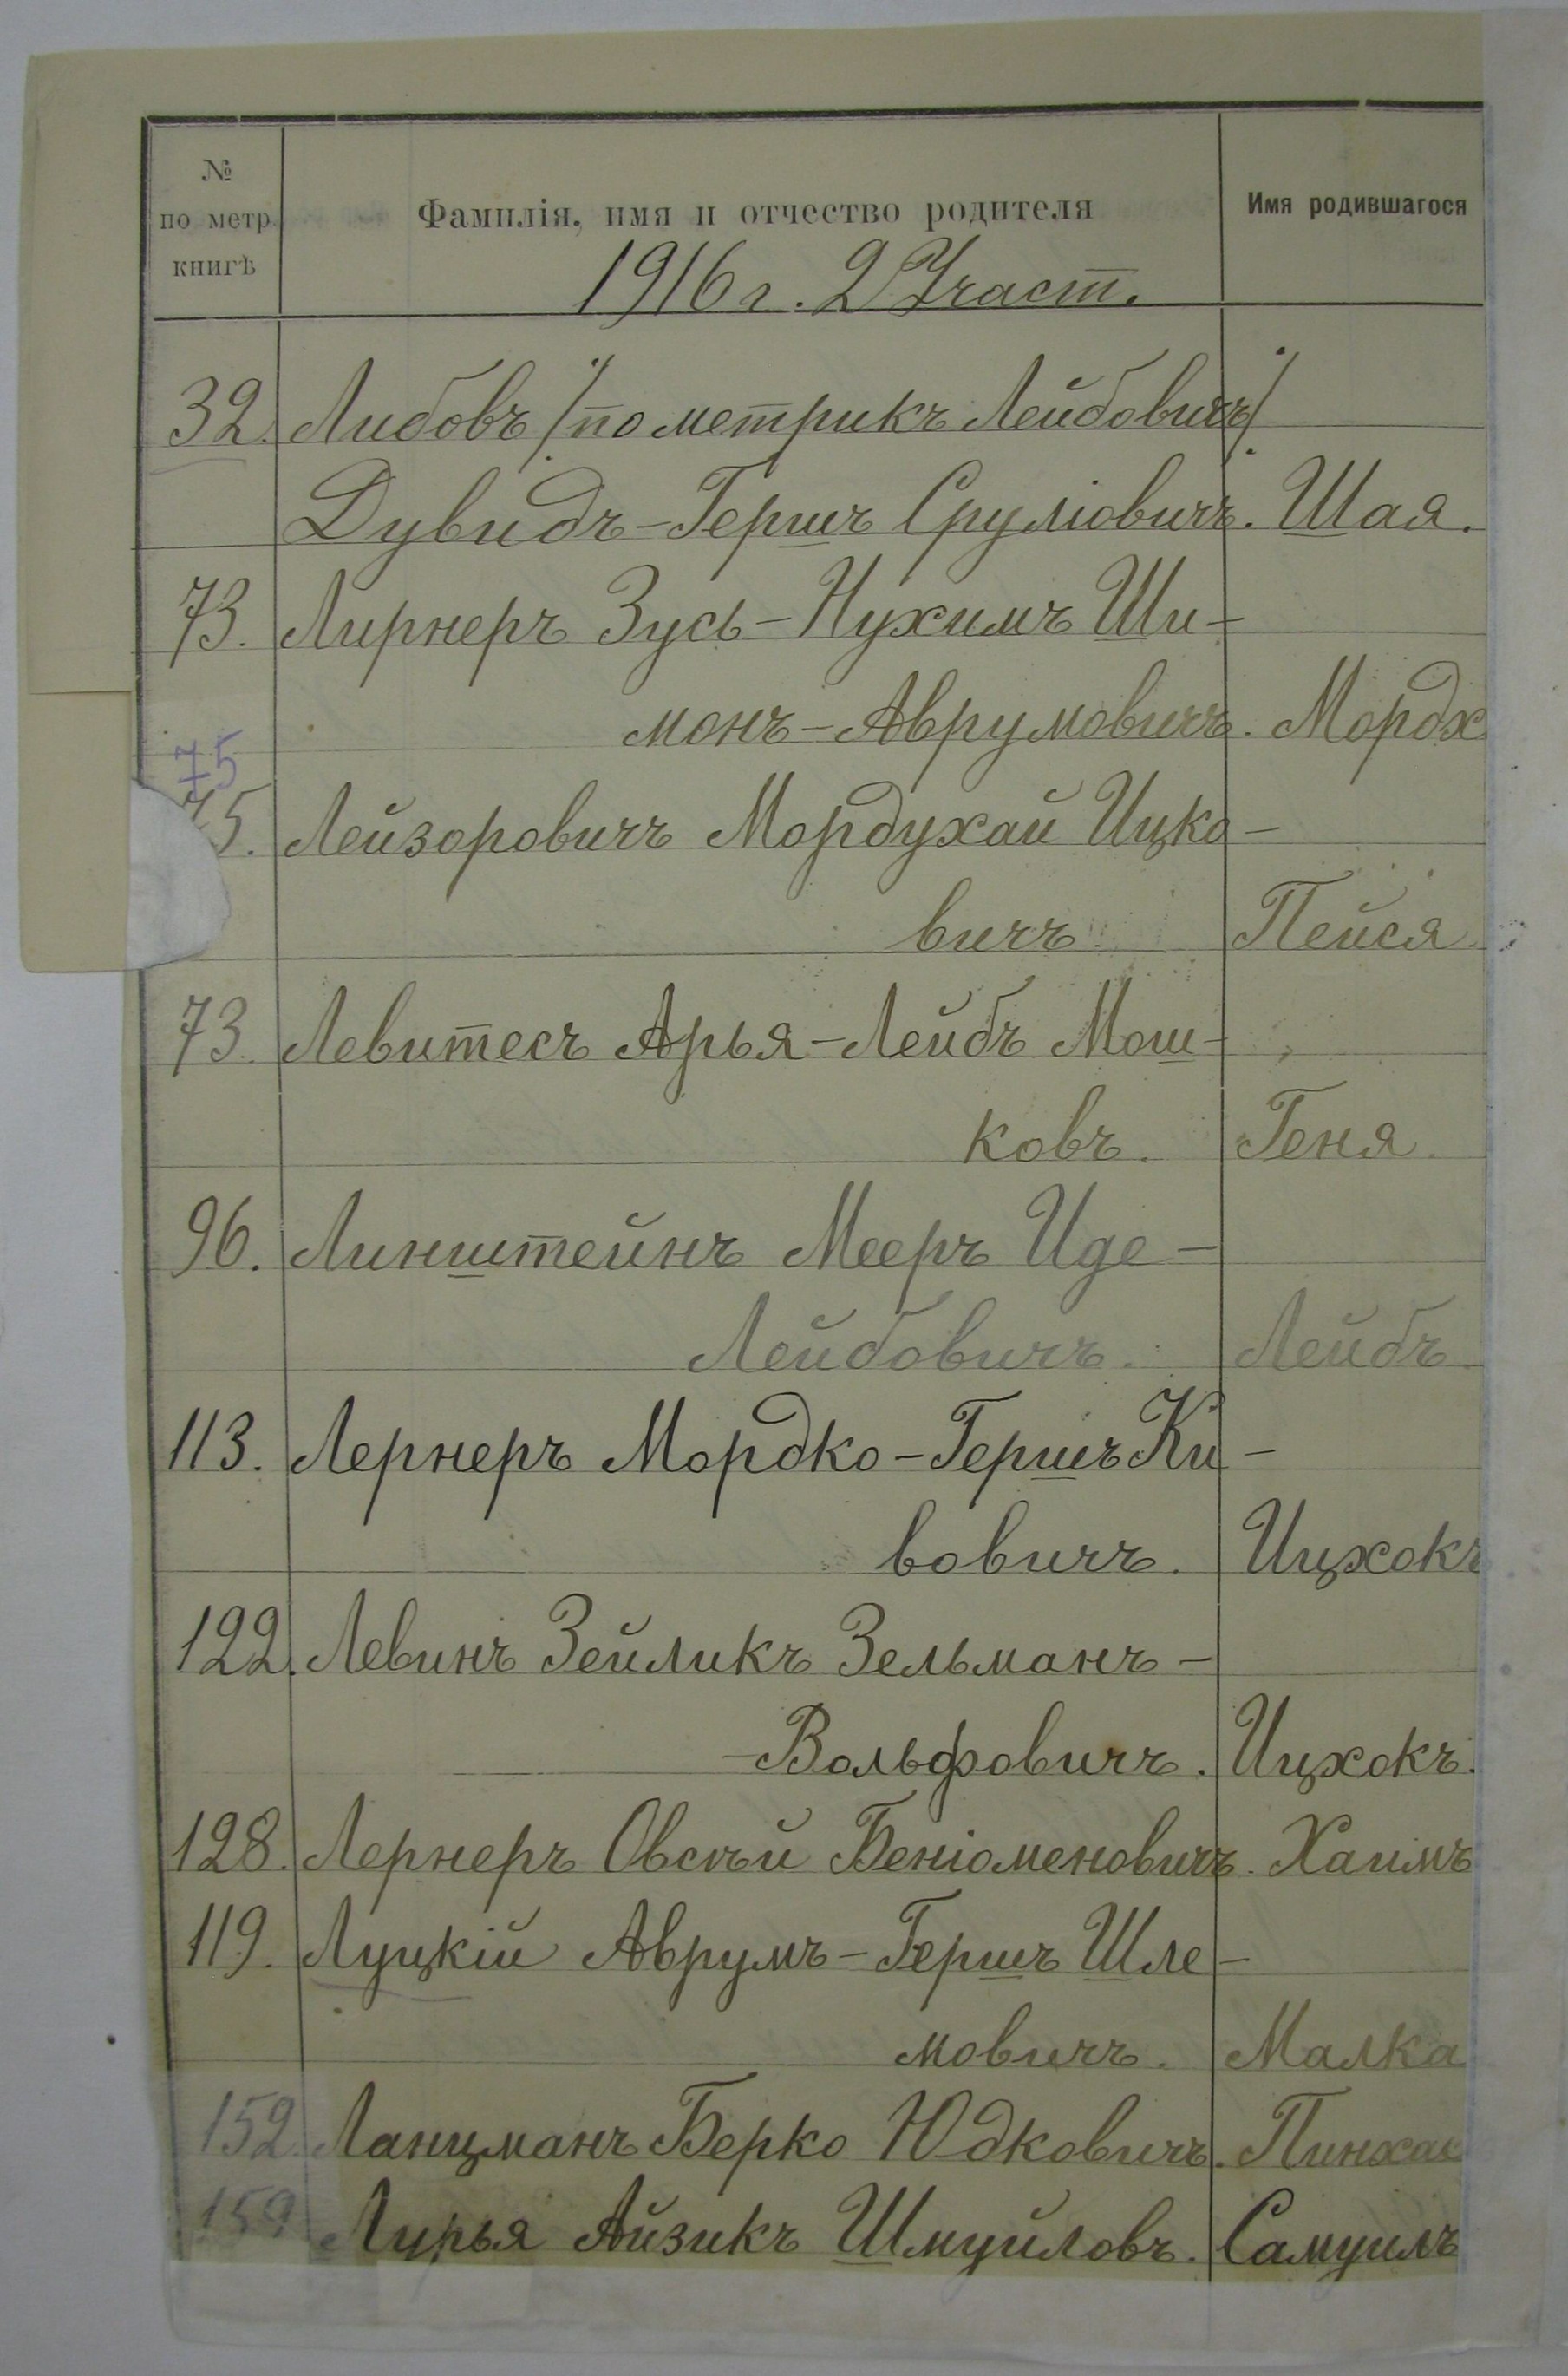 № по метр. книгѣ Фамилія, имя и отчество родителя Имя родившагося
1916 г. 2 Участ.
32. Либовъ /по метрикѣ Лейбовичъ/
Дувидъ-Гершъ Сруліовичъ. Шая.
73. Лирнеръ Зусь-Нухимъ Ши-
монъ-Аврумовичъ. Мордх
75
75. Лейзоровичъ Мордухай Ицко-
вичъ. Пейся.
73. Левитесъ Арья-Лейбъ Мош-
ковъ. Геня.
96. Линштейнъ Мееръ Иде-
Лейбовичъ. Лейбъ
113. Лернеръ Мордко-Гершъ Ки-
вовичъ. Ицхокъ
122. Левинъ Зейликъ Зельманъ-
-Вольфовичъ. Ицхокъ.
128. Лернеръ Овсѣй Беніоменовичъ. Хаимъ
119. Луцкій Аврумъ-Гершъ Шле-
мовичъ. Малка
152. Ланцманъ Берко Юдковичъ. Пинхас
159 Лурья Айзикъ Шмуйловъ. Самуилъ